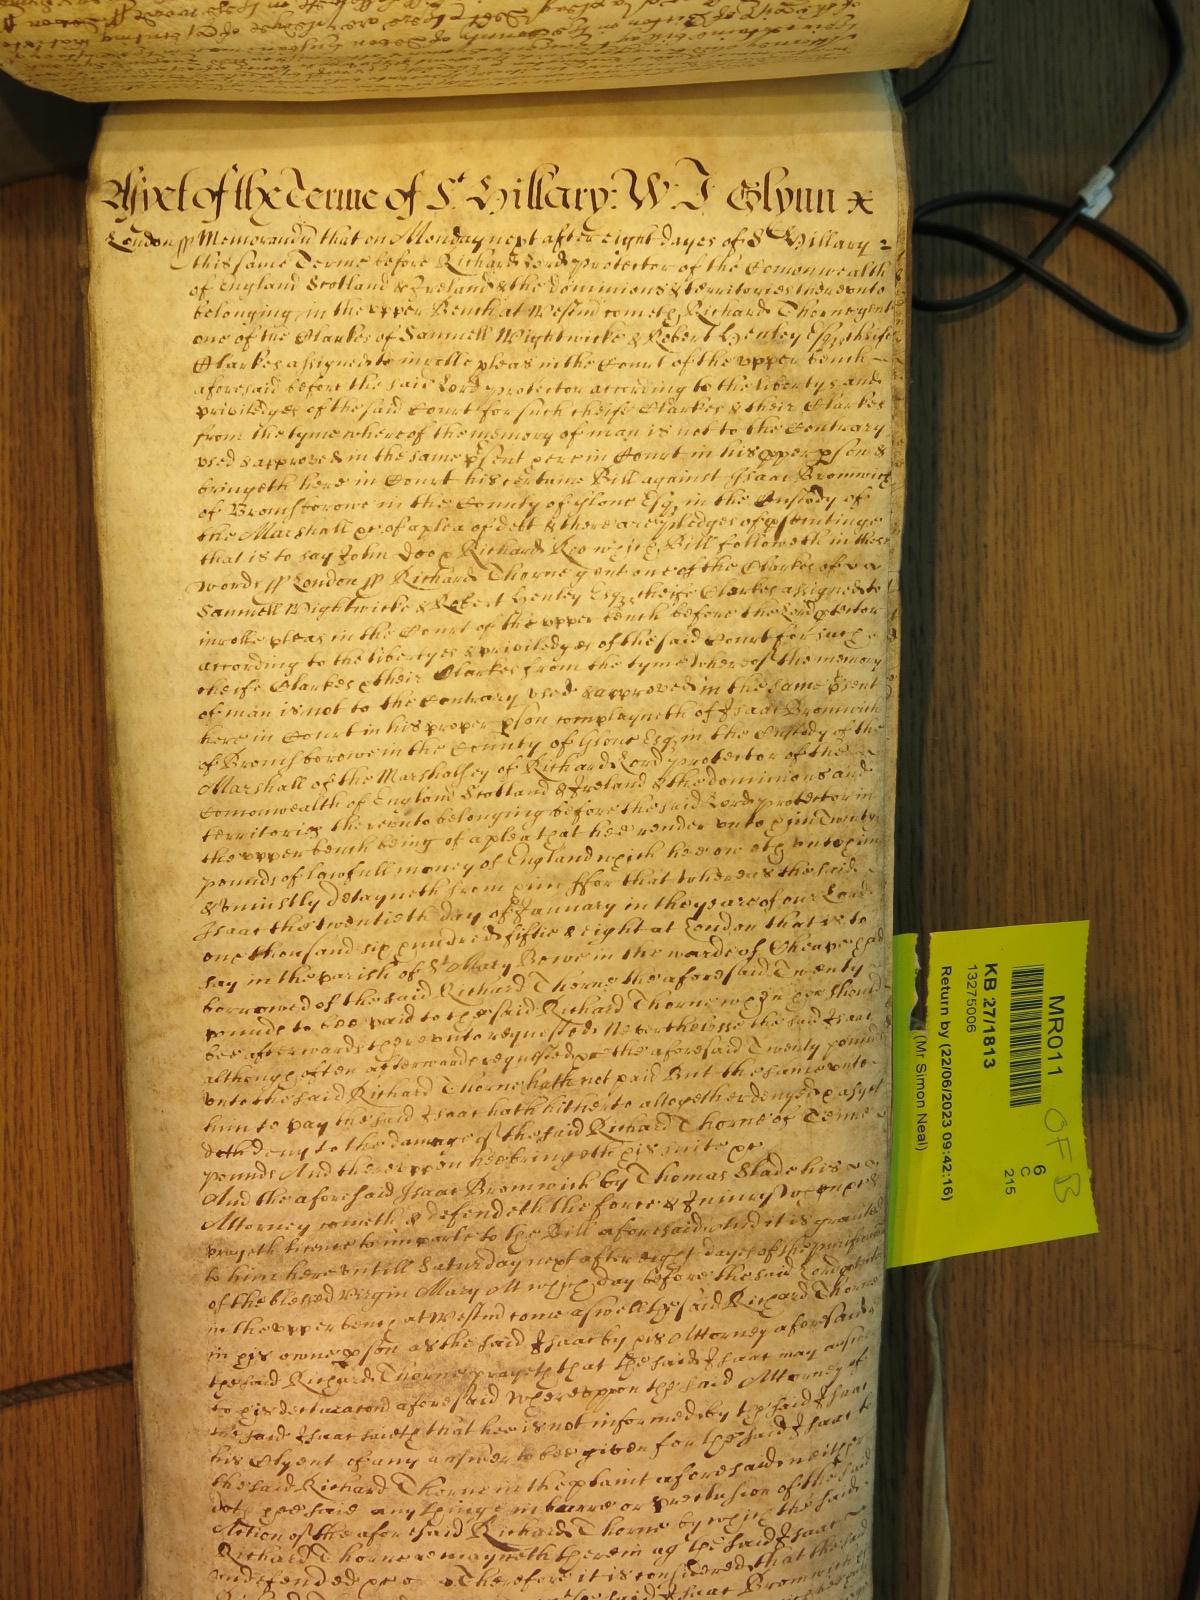 As yet of the Terme of St. Hillary: W: J Glynn x
London ss Memorand'd that on Monday next after eight dayes of St Hillary
this same Terme before Richard Lord Protector of the Comonwealth
of England Scotland & Ireland & the dominions & territories thereunto
belonging in the upper Bench at Westm'r cometh Richard Thorne gent
one of the Clarkes of Samuell Wightwicke & Robert Henley Esqrs cheife
Clarkes assigned to inrolle pleas in the Court of the upper bench
aforesaid before the said Lord Protector according to the libertyes and
priviledges of the said Court for such cheife Clarkes & their Clarkes
from the tyme whereof the memory of man is not to the Contrary
used & approved in the same p'sent here in Court in his proper p'son &
bringeth here in Court his certaine Bill against Isaac Bromwich
of Bromsborowe in the County of Glouc Esqr in the Custody of
the Marshall &c of a plea of debt & there are pledges of p'sentinge
that is to say John Doo & Richard Roo which Bill followeth in these
words ss London ss Richard Thorne gent one of the Clarkes of
Samuell Wightwicke & Robert Henley Esqrs cheife Clarkes assigned to
inrolle pleas in the Court of the upper bench before the Lord p'tector
according to the libertyes & priviledges of the said Court for such
cheife Clarkes & their Clarkes from the tyme whereof the memory
of man is not to the Contrary used & approved in the same p'sent
here in Court in his proper p'son complayneth of Isaac Bromwich
of Bromsborowe in the County of Glouc Esqr in the Custody of the
Marshall of the Marshalsey of Richard Lord Protector of the
Comonwealth of England Scotland & Ireland & the dominions and
territories thereunto belonging before the said Lord Protector in
the upper bench being of a plea that hee render unto him Twenty
pounds of lawfull money of England which hee oweth unto him
& uniustly detayneth from him ffor that whereas the said
Isaac the twentieth day of January in the yeare of our Lord
one thousand six hundred fiftie & eight at London that is to
say in the parish of St Mary Bowe in the warde of Cheape had
borrowed of the said Richard Thorne the aforesaid Twenty
pounds to bee paid to the said Richard Thorne when hee should
bee afterwards thereunto requested Neverthelesse the said Isaac
although often afterwards requested &c the aforesaid Twenty pounds
unto the said Richard Thorne hath not paid But the same unto
him to pay the said Isaac hath hitherto altogether denyed & as yet
doth deny to the damage of the said Richard Thorne of Tenne
pounds And thereuppon hee bringeth his suite &c
And the aforesaid Isaac Bromwich by Thomas Slade his
Attorney cometh & defendeth the force & Iniury when &c &
prayeth licence to imparle to the Bill aforesaid And it is graunted
to him here untill Saturday next after eight dayes of the purificacon
of the blessed virgin Mary Att which day before the said Lord p'tector
in the upper bench at Westm'r come aswell the said Richard Thorne
in his owne p'son as the said Isaac by his Attorney aforesaid
the said Richard Thorne prayeth that the said Isaac may answer
to his declaracon aforesaid whereuppon the said Attorney of
the said Isaac saieth that hee is not informed by the said Isaac
his Clyent of any answer to bee given for the said Isaac to
the said Richard Thorne in the plaint aforesaid neither
doth hee said any thinge in barre or preclusion of the said
Action of the aforesaid Richard Thorne by which the said
Richard Thorne remayneth therein ag't the said Isaac
undefended &c Therefore it is considered that the said
MR011
OFB
KB 27/1813
13275006
6
C
215
Return by (22/06/2023 09:42:16)
(Mr Simon Neal)